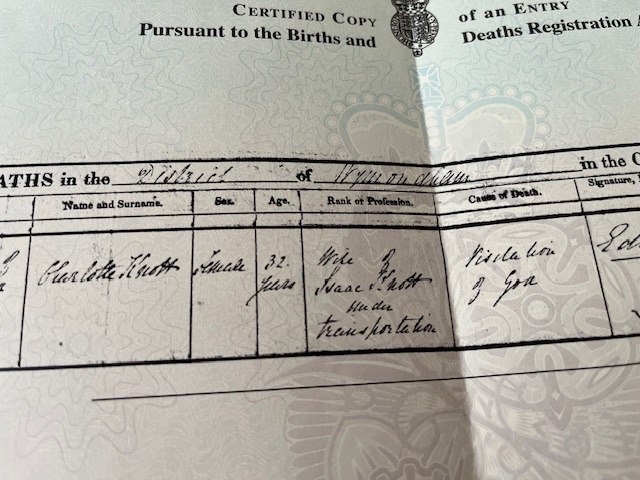 CERTIFIED COPY of an ENTRY
Pursuant to the Births and Deaths Registration A
ATHS in the District of Wymondham in the C
Name and Surname. Sex. Age. Rank or Profession. Cause of Death. Signature,
Charlotte Knott Female 32 Wife of Visitation
years Isaac Knott of God
under
transportation